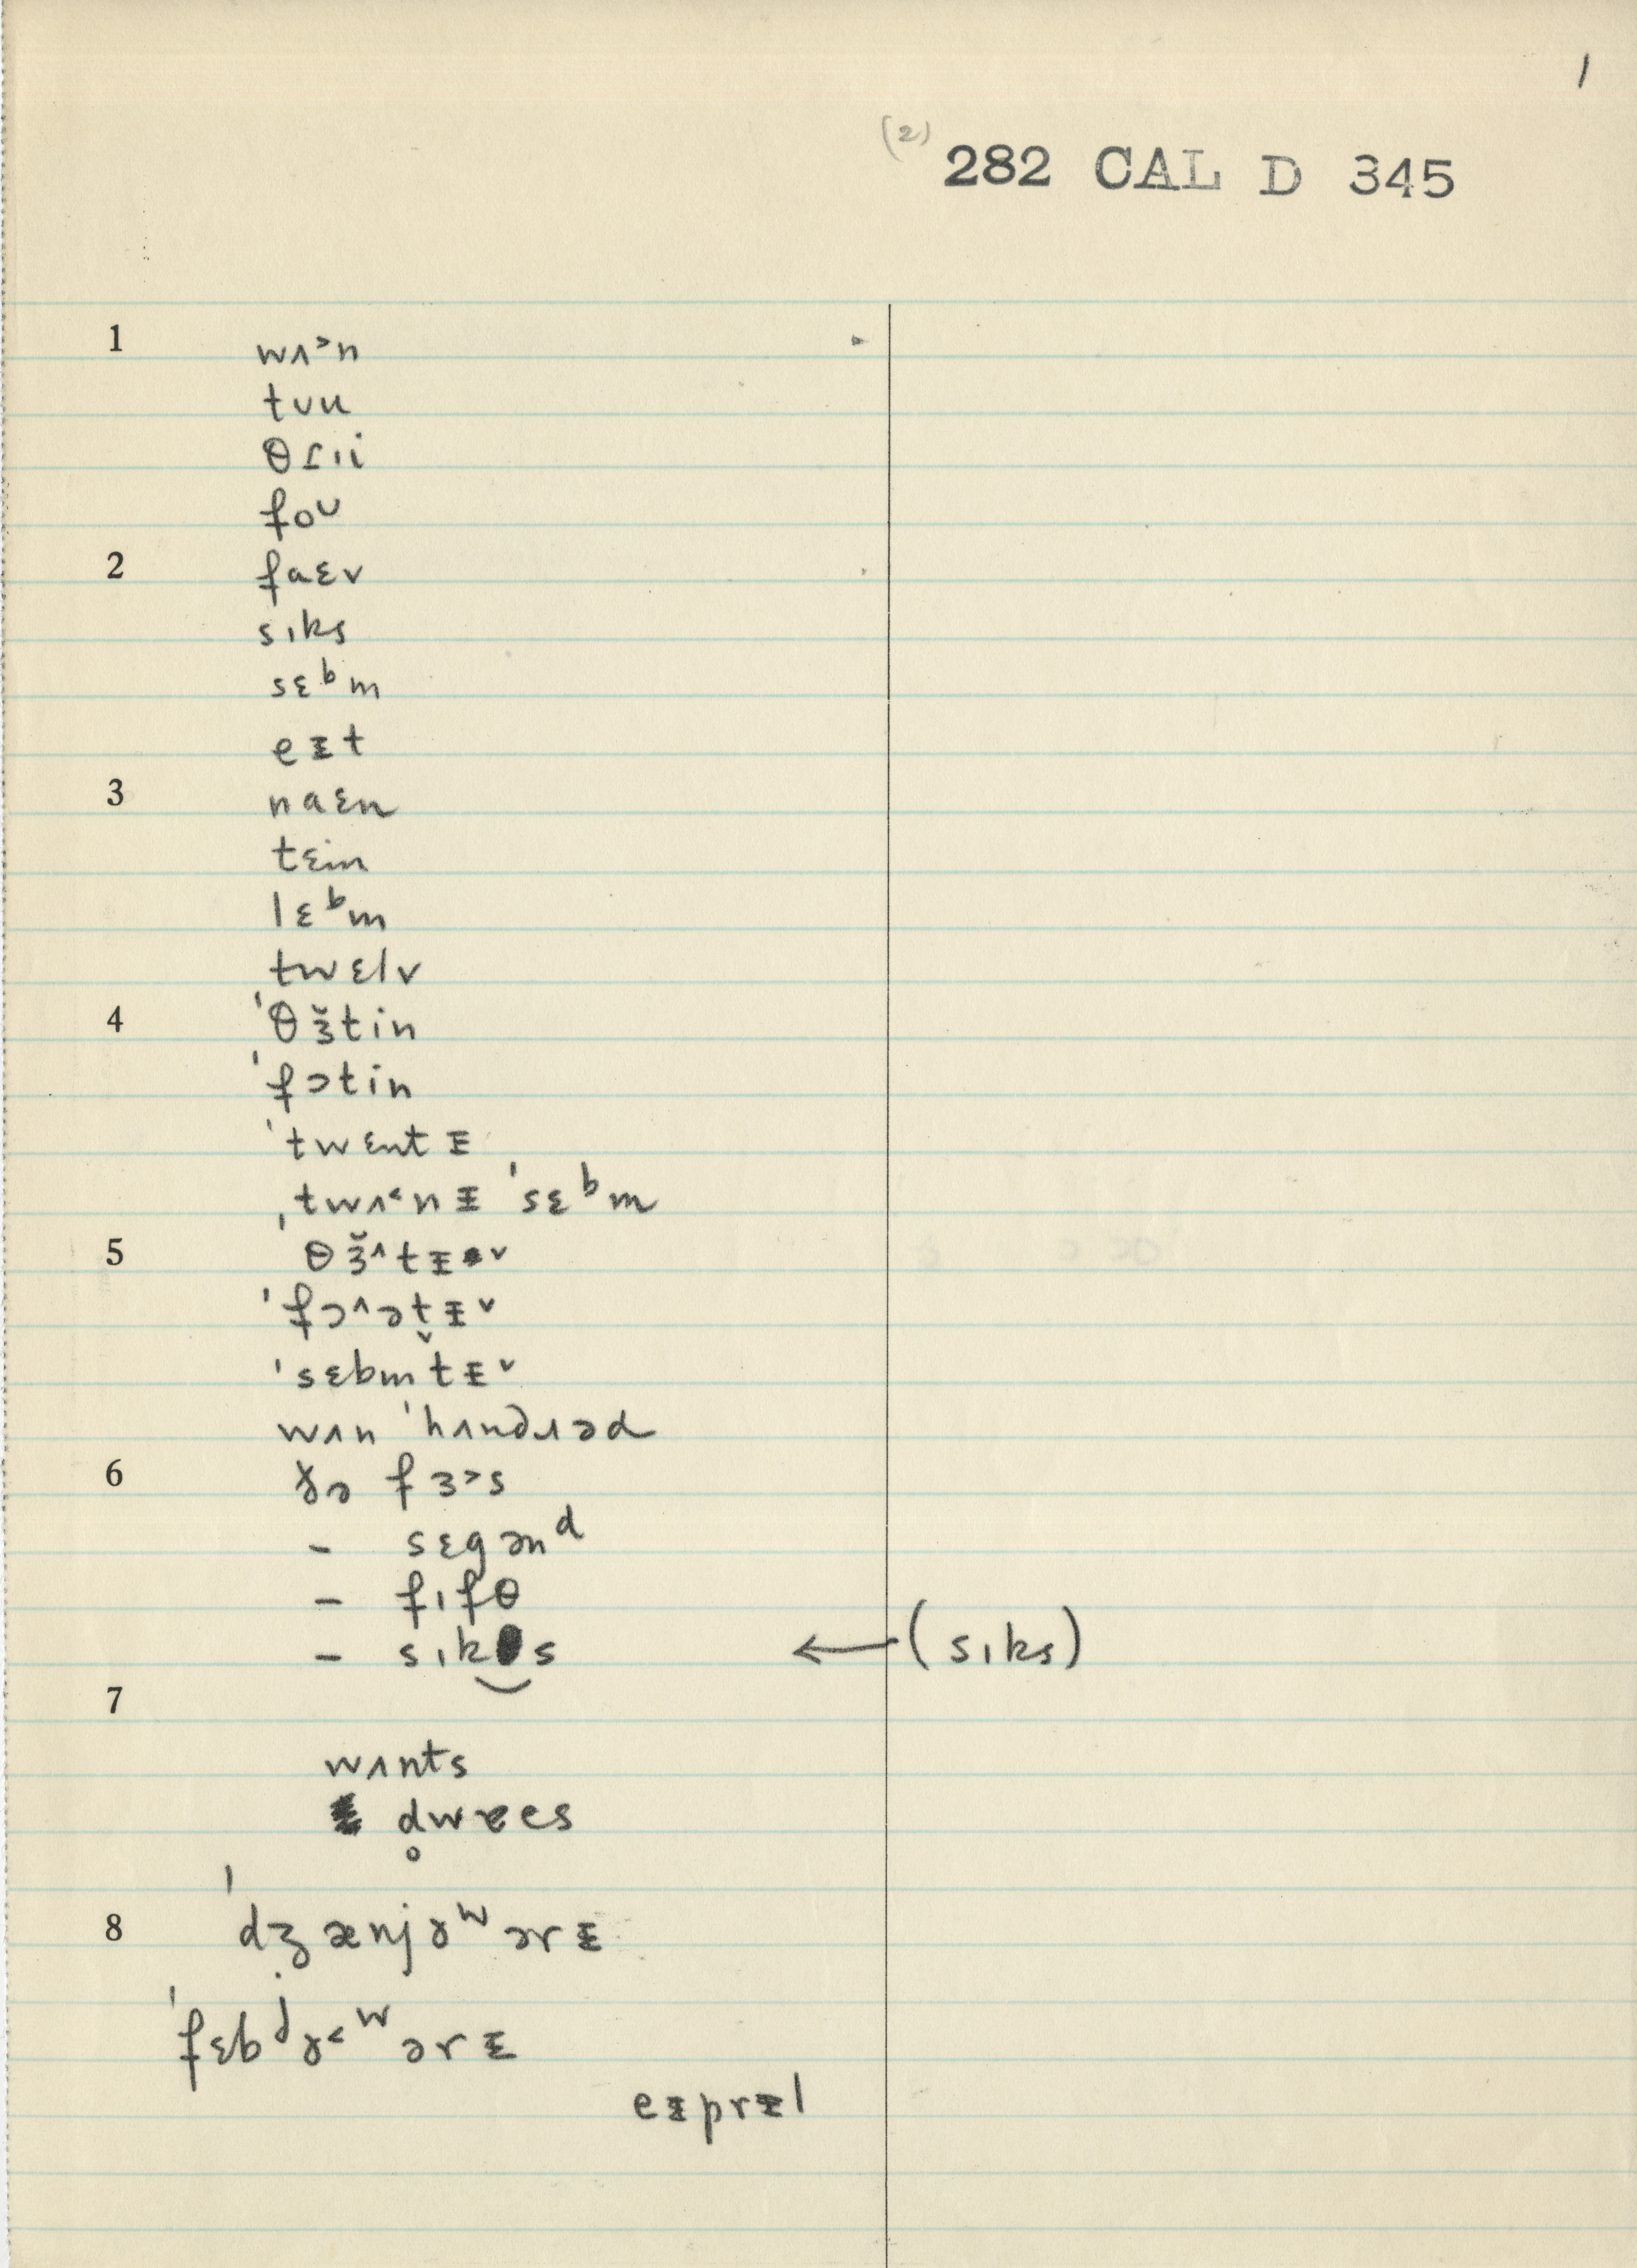 1
(2) 282 CAL D 345
1 wʌ˃n
tʊu
θɾɪi
foᴜ
2 faɛv
sɪks
sɛᵇm
eᵻt
3 naɛn
tɛin
lɛᵇm
twɛlv
4 ˈθɜ̆tin
ˈfɔtin
ˈtwɛntᵻ
ˌtwʌ˂nᵻ ˈsɛᵇm
5 θɜ̆˄tᵻ˅
ˈfɔ˄ət̬ᵻ˅
ˈsɛbmtᵻ˅
wʌn ˈhʌndɹəd
6 ɤə fɜ˃s
– sɛgənᵈ
– fɪfθ
– sɪk‿s ← (sɪks)
7
wʌnts
d̥wɐes
8 ˈdʒænjɤʷərᵻ
ˈfɛbʲɤ˂ʷərᵻ
eᵻprᵻl